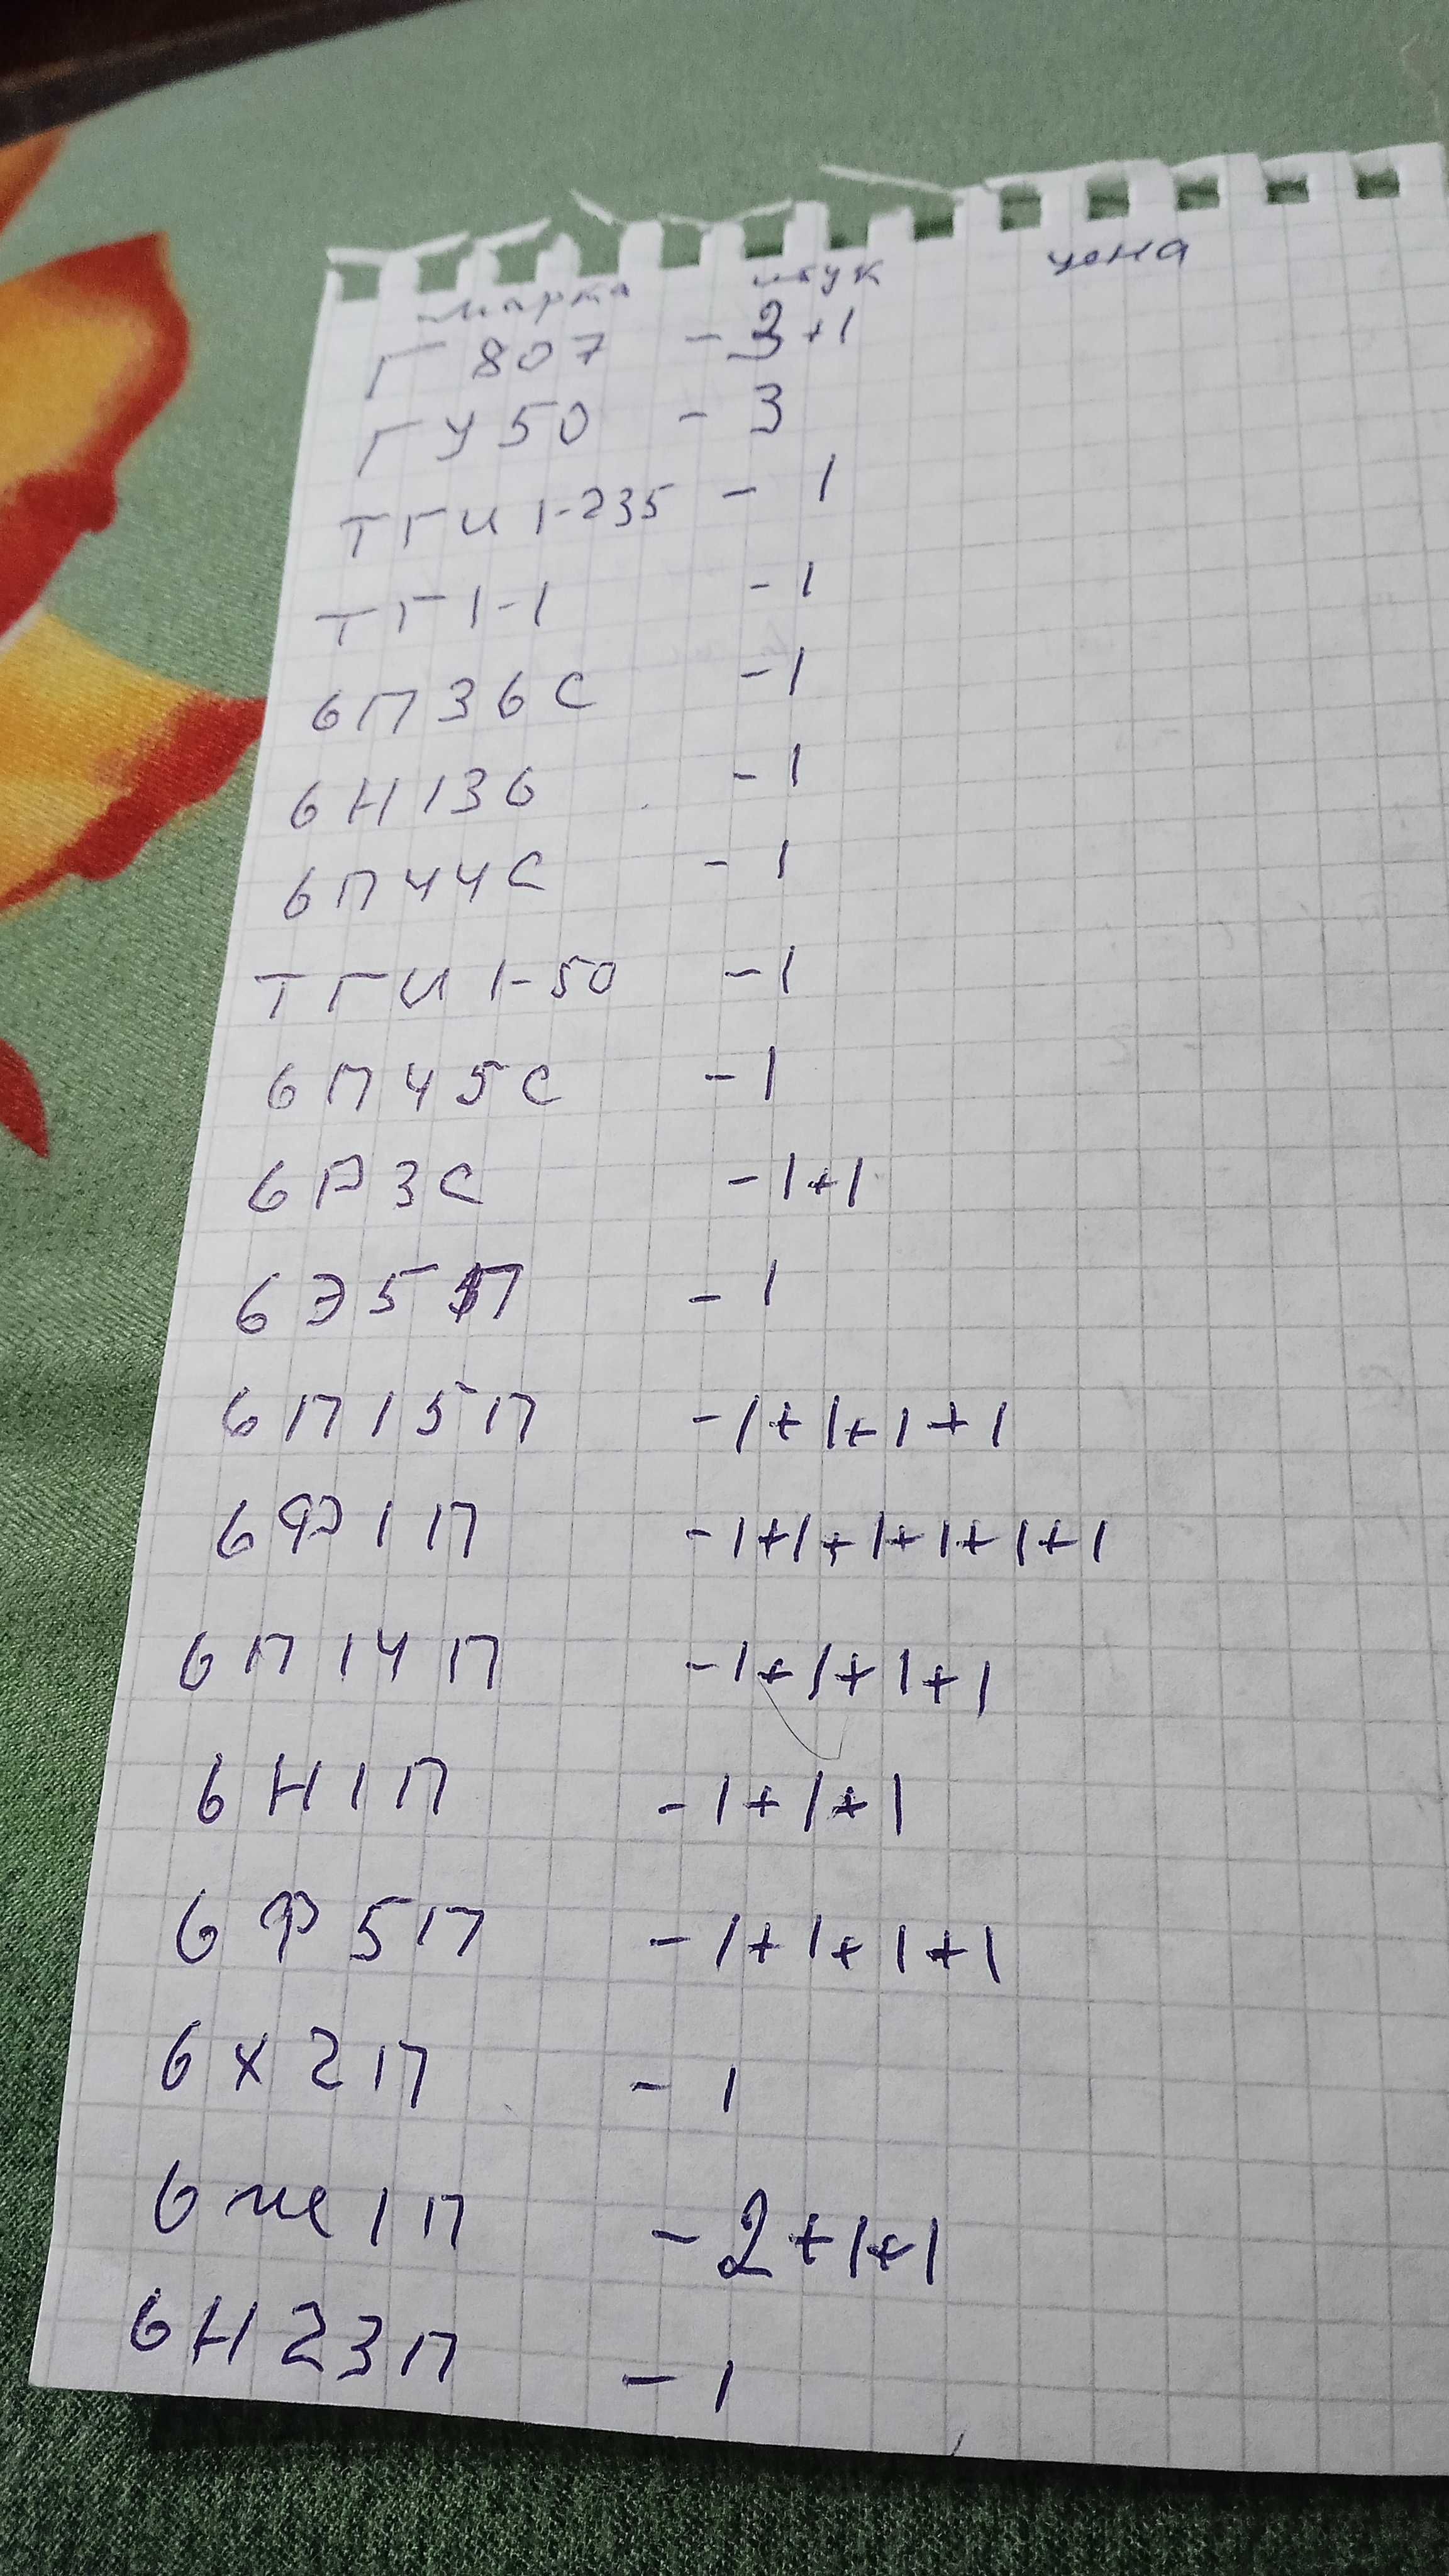 марка штук цена
Г 807 - 3+1
ГУ 50 - 3
ТГИ 1-235 - 1
ТГ 1-1 - 1
6П36С - 1
6Н136 - 1
6П44С - 1
ТГИ 1-50 - 1
6П45С - 1
6Р3С - 1+1
6Э5П - 1
6П15П - 1+1+1+1
6Ф1П - 1+1+1+1+1+1
6П14П - 1+1+1+1
6Н1П - 1+1+1
6Ф5П - 1+1+1+1
6х2П - 1
6ж1П - 2+1+1
6Н23П - 1